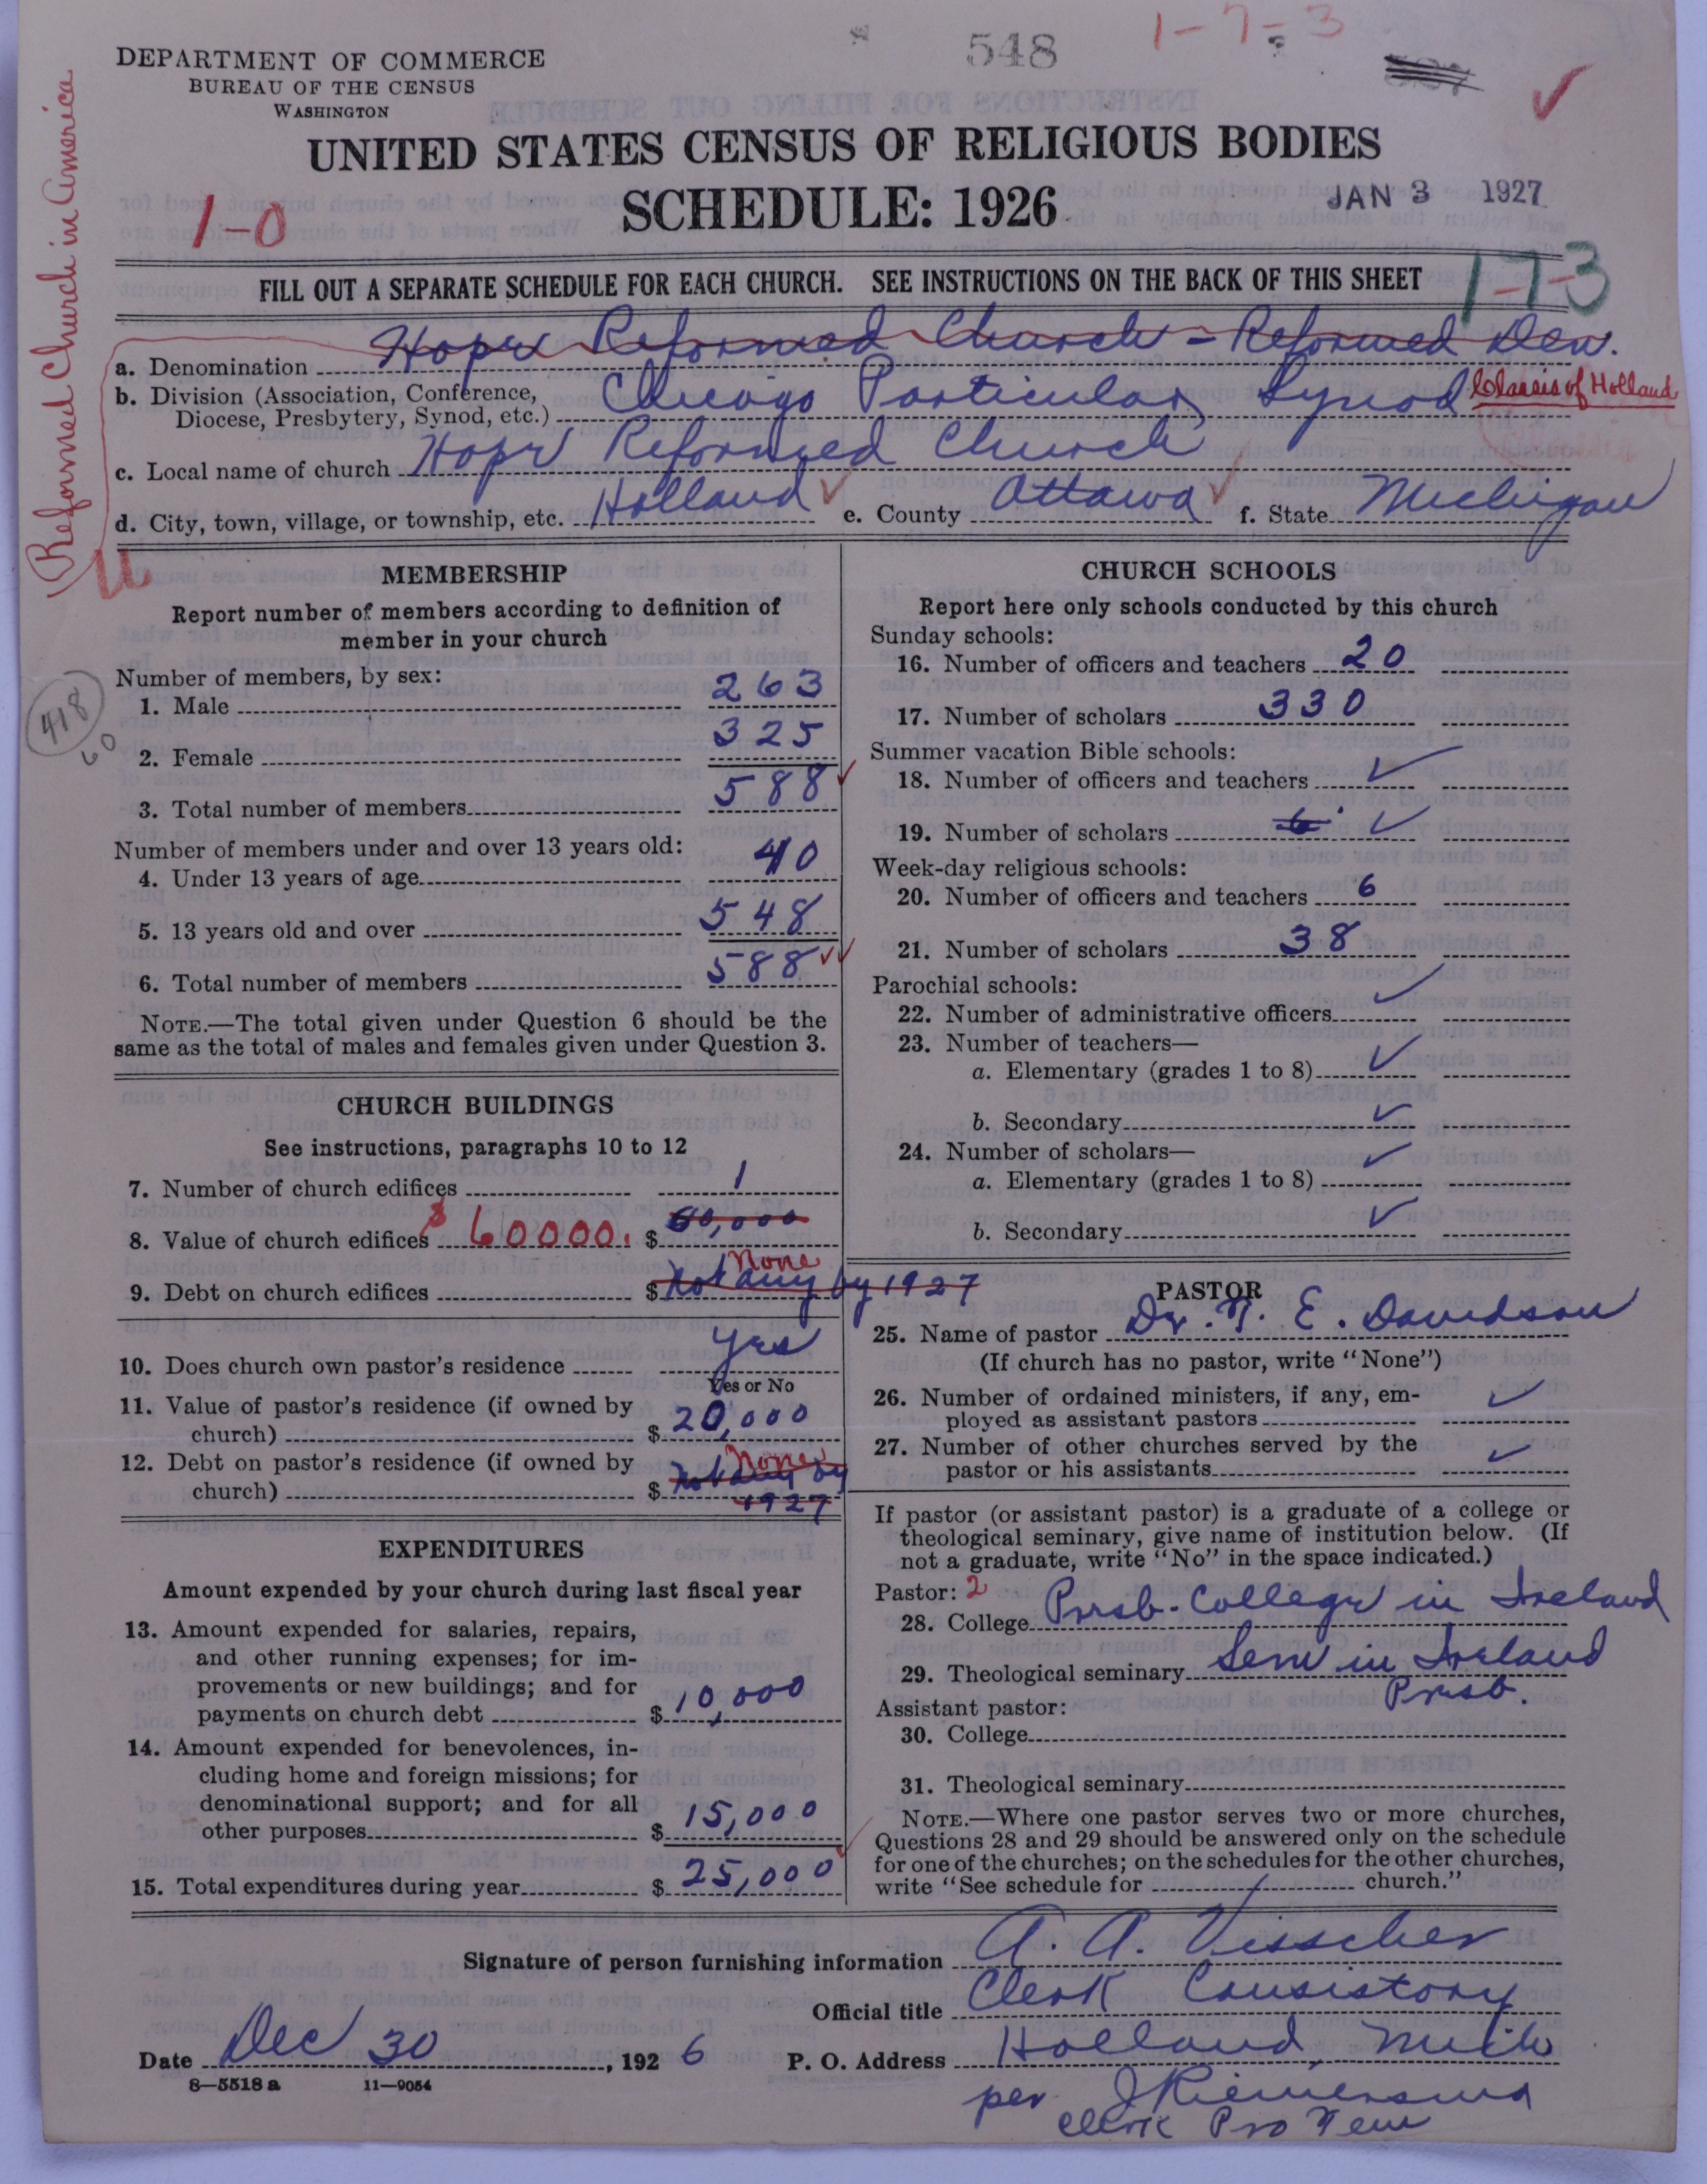 548
1-7-3
DEPARTMENT OF COMMERCE
BUREAU OF THE CENSUS
WASHINGTON
UNITED STATES CENSUS OF RELIGIOUS BODIES
SCHEDULE: 1926
JAN 3 1927
1-0
Reformed Church in America
FILL OUT A SEPARATE SCHEDULE FOR EACH CHURCH. SEE INSTRUCTIONS ON THE BACK OF THIS SHEET
1-7-3
a. Denomination Hope Reformed Church - Reformed Den.
b. Division (Association, Conference, Diocese, Presbytery, Synod, etc.) Chicago Particular Synod Classis of Holland
c. Local name of church Hope Reformed Church
d. City, town, village, or township, etc. Holland e. County Ottawa f. State Michigan
MEMBERSHIP
Report number of members according to definition of
member in your church
Number of members, by sex:
1. Male 263
2. Female 325
3. Total number of members 588
Number of members under and over 13 years old:
4. Under 13 years of age 40
5. 13 years old and over 548
6. Total number of members 588
NOTE.—The total given under Question 6 should be the
same as the total of males and females given under Question 3.
418
60
CHURCH BUILDINGS
See instructions, paragraphs 10 to 12
7. Number of church edifices 1
8. Value of church edifices $60000. $ 60,000
9. Debt on church edifices $ Not any by 1927 None
10. Does church own pastor's residence Yes
Yes or No
11. Value of pastor's residence (if owned by
church) $ 20,000
12. Debt on pastor's residence (if owned by
church) $ Not any by 1927 None
EXPENDITURES
Amount expended by your church during last fiscal year
13. Amount expended for salaries, repairs,
and other running expenses; for im-
provements or new buildings; and for
payments on church debt $ 10,000
14. Amount expended for benevolences, in-
cluding home and foreign missions; for
denominational support; and for all
other purposes $ 15,000
15. Total expenditures during year $ 25,000
CHURCH SCHOOLS
Report here only schools conducted by this church
Sunday schools:
16. Number of officers and teachers 20
17. Number of scholars 330
Summer vacation Bible schools:
18. Number of officers and teachers ✓
19. Number of scholars 6 ✓
Week-day religious schools:
20. Number of officers and teachers 6
21. Number of scholars 38
Parochial schools:
22. Number of administrative officers ✓
23. Number of teachers—
a. Elementary (grades 1 to 8) ✓
b. Secondary ✓
24. Number of scholars— ✓
a. Elementary (grades 1 to 8)
b. Secondary ✓
PASTOR
25. Name of pastor Dr. T. E. Davidson
(If church has no pastor, write "None")
26. Number of ordained ministers, if any, em-
ployed as assistant pastors ✓
27. Number of other churches served by the
pastor or his assistants ✓
If pastor (or assistant pastor) is a graduate of a college or
theological seminary, give name of institution below. (If
not a graduate, write "No" in the space indicated.)
Pastor: 2
28. College Presb. College in Ireland
29. Theological seminary Sem in Ireland
Presb.
Assistant pastor:
30. College
31. Theological seminary
NOTE.—Where one pastor serves two or more churches,
Questions 28 and 29 should be answered only on the schedule
for one of the churches; on the schedules for the other churches,
write "See schedule for church."
Signature of person furnishing information A. A. Visscher
Official title Clerk Consistory
Date Dec 30, 1926 P. O. Address Holland, Mich
8—5518 a 11—9054
per J Riemersma
Clerk Pro Tem